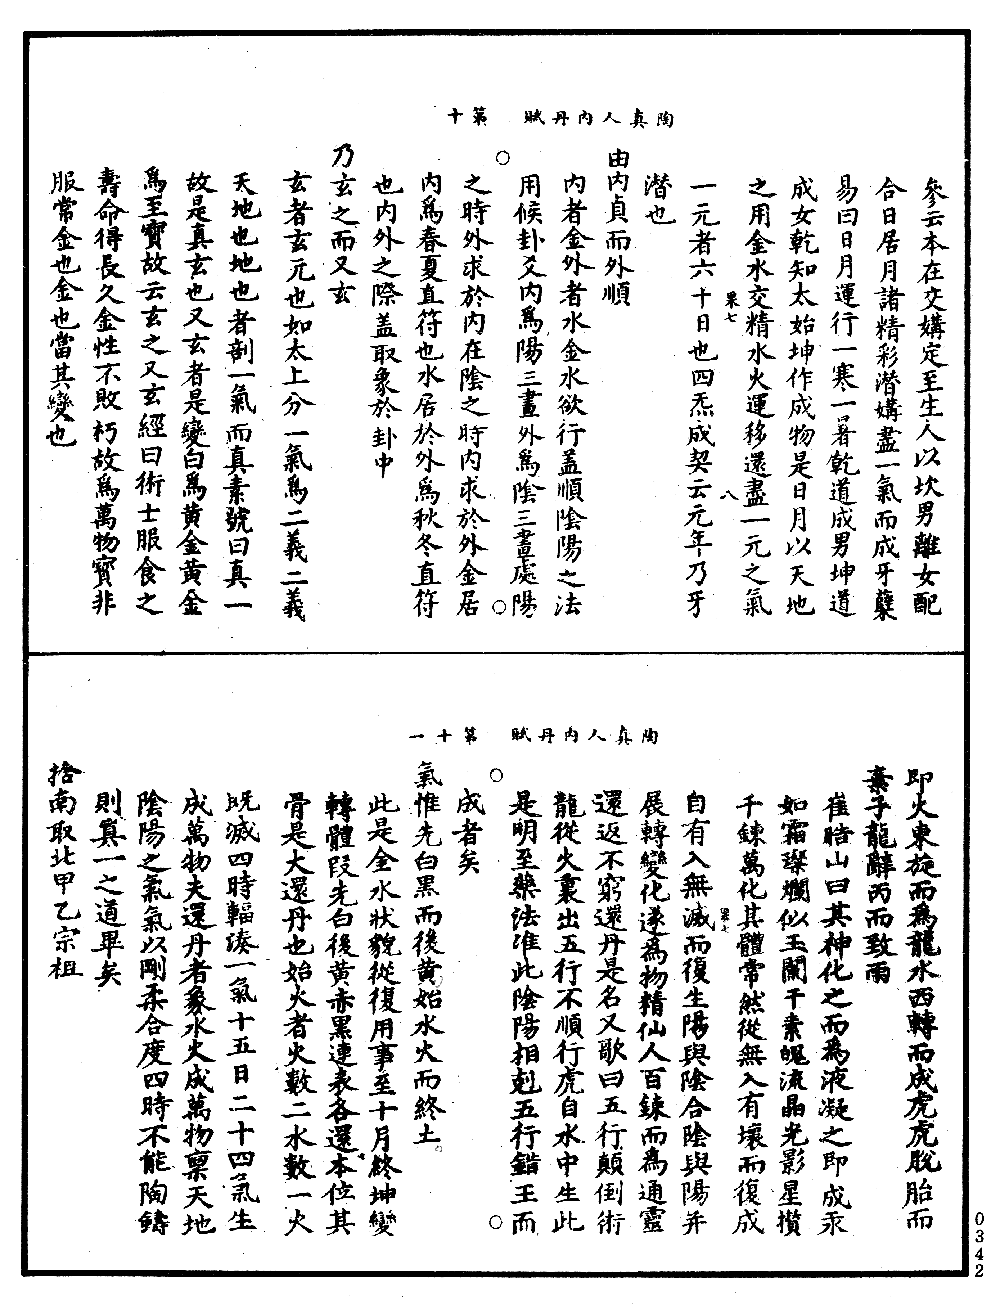 陶真人內丹賦　第十
參云本在交媾定至生人以坎男離女配
合日居月諸精彩潛媾盡一氣而成牙蘖
易曰日月運行一寒一暑乾道成男坤道
成女乾知太始坤作成物是日月以天地
之用金水交精水火運移還盡一元之氣
果七　八
一元者六十日也四炁成契云元年乃牙
潛也
由內貞而外順
內者金外者水金水欲行盖順陰陽之法
用候卦爻內爲陽三畫外爲陰三畫處陽
之時外求於內在陰之時內求於外金居
內爲春夏直符也水居於外爲秋冬直符
也內外之際盖取象於卦中
乃玄之而又玄
玄者玄元也如太上分一氣爲二義二義
天地也地也者剖一氣而真素號曰真一
故是真玄也又玄者是變白爲黃金黃金
爲至寶故云玄之又玄經曰術士服食之
壽命得長久金性不敗朽故爲萬物寶非
服常金也金也當其變也
陶真人內丹賦　第十一
即火東旋而爲龍水西轉而成虎虎脫胎而
棄子龍辭丙而致雨
崔晧山曰其神化之而爲液凝之即成汞
如霜璨爛似玉闌干素魄流晶光影星攢
千鍊萬化其體常然從無入有壞而復成
果七
自有入無滅而復生陽與陰合陰與陽并
展轉變化遂為物精仙人百鍊而為通靈
還返不窮還丹是名又歌曰五行顛倒術
龍從火裏出五行不順行虎自水中生此
是明至藥法准此陰陽相剋五行錯王而
成者矣
氣惟先白黑而後黃始水火而終土
此是金水狀貌從復用事至十月終坤變
轉體段先白後黃赤黑連表各還本位其
骨是大還丹也始火者火數二水數一火
既滅四時輻湊一氣十五日二十四氣生
成萬物夫還丹者象水火成萬物稟天地
陰陽之氣氣以剛柔合度四時不能陶鑄
則真一之道畢矣
捨南取北甲乙宗祖
0342